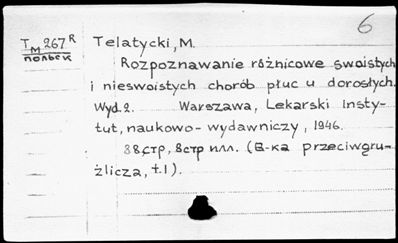 6
T M 267 R Telatycki, M.
польск
Rozpoznawanie różnicowe swoistych
i nieswoistych chorób płuc u dorosłych.
Wyd. 2. Warszawa, Lekarski Insty-
tut, naukowo-wydawniczy, 1946.
38 стр, 8 стр илл. (B-ka przeciwgru-
źlicza, t.1).